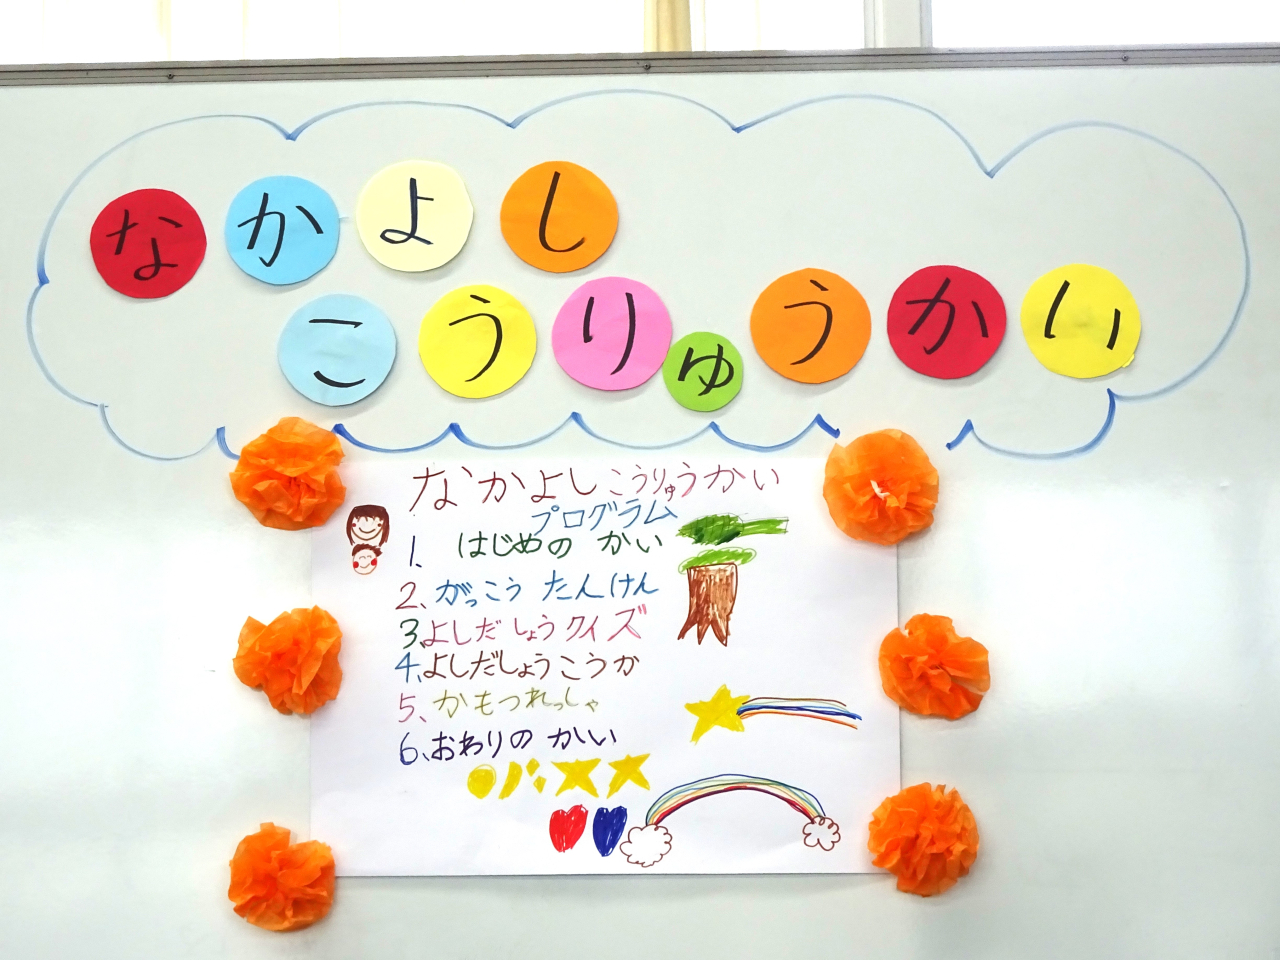 なかよし
こうりゅうかい
なかよしこうりゅうかい
プログラム
1. はじめの かい
2、がっこう たんけん
3、よしだしょうクイズ
4、よしだしょうこうか
5、かもつれっしゃ
6、おわりの かい